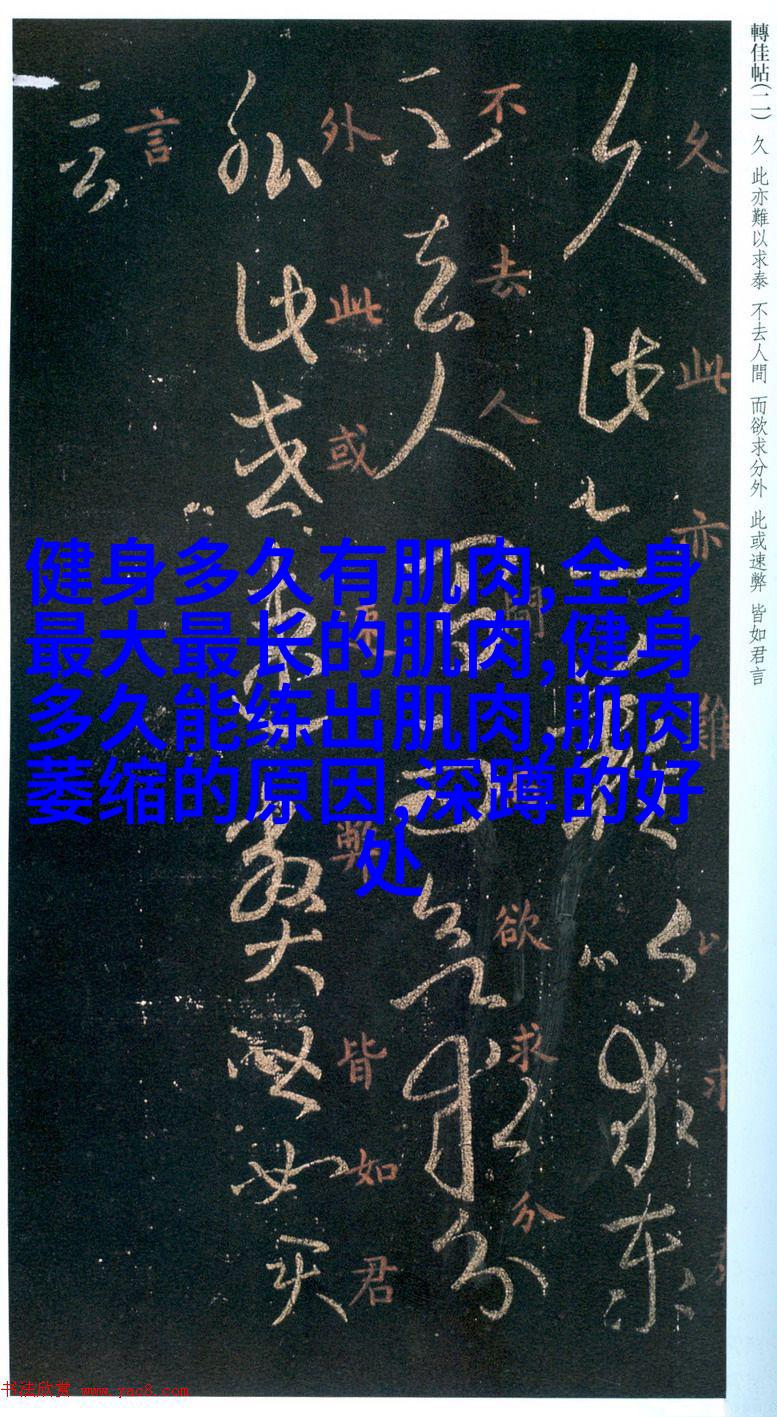 轉佳帖(二) 久 此亦難以求泰 不去人間 而欲求分外 此或速弊 皆如君言
久此亦難以求泰
久此亦難以求
不去人間而欲求分
不去人間欲求分
外此或速弊皆如君
外此或速弊皆如君
言
言
健身多久有肌肉,全身
最大最长的肌肉,健身
多久能练出肌肉,肌肉
萎缩的原因,深蹲的好
处
书法欣赏 www.yac8.com